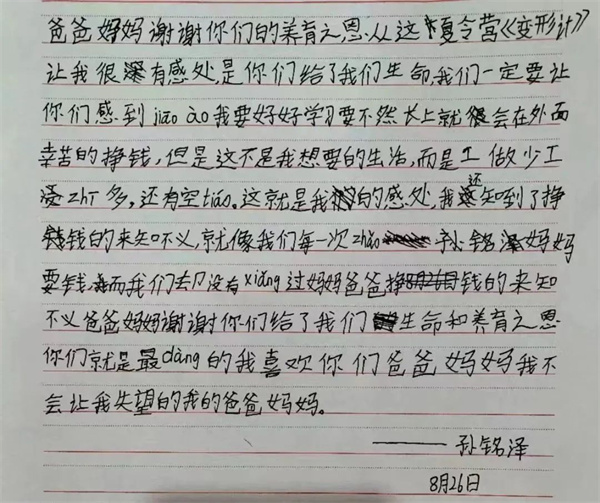 爸爸妈妈谢谢你们的养育之恩.从这个夏令营《变形计》
让我很深有感处,是你们给了我们生命,我们一定要让
你们感到jiao ào我要好好学习要不然长上就很会在外面
幸苦的挣钱,但是这不是我想要的生活,而是工做少工
zhī多,还有空tiáo。这就是我们的感处,我还知到了挣
钱的来知不义,就像我们每一次zhǎo孙铭泽妈妈
要钱,而我们去门没有xiǎng过妈妈爸爸挣钱的来知
不义爸爸妈妈谢谢你们给了我们生命和养育之恩
你们就是最dàng的我喜欢你们爸爸妈妈我不
会让我失望的我的爸爸妈妈。
——孙铭泽
8月26日